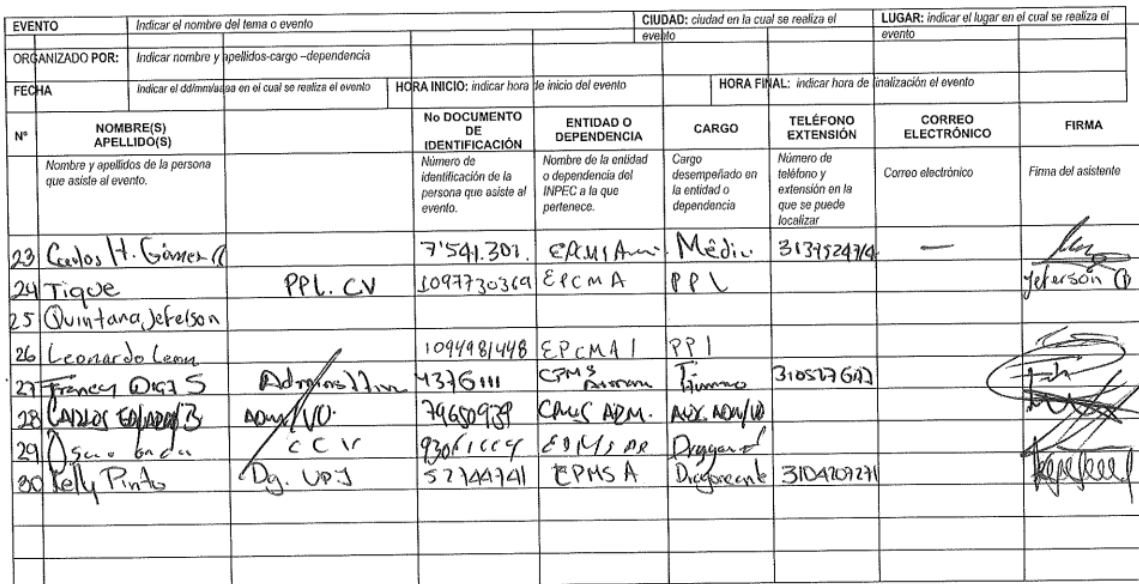 EVENTO Indicar el nombre del tema o evento CIUDAD: ciudad en la cual se realiza el evento LUGAR: indicar el lugar en el cual se realiza el evento
ORGANIZADO POR: Indicar nombre y apellidos-cargo –dependencia
FECHA Indicar el dd/mm/aaaa en el cual se realiza el evento HORA INICIO: indicar hora de inicio del evento HORA FINAL: indicar hora de finalización el evento
N° NOMBRE(S) APELLIDO(S) No DOCUMENTO DE IDENTIFICACIÓN ENTIDAD O DEPENDENCIA CARGO TELÉFONO EXTENSIÓN CORREO ELECTRÓNICO FIRMA
Nombre y apellidos de la persona que asiste al evento. Número de identificación de la persona que asiste al evento. Nombre de la entidad o dependencia del INPEC a la que pertenece. Cargo desempeñado en la entidad o dependencia Número de teléfono y extensión en la que se puede localizar Correo electrónico Firma del asistente
23 Carlos H. Gómez 7'541.301. Médic. —
24 Tique PPL. CV 1097730369 EPCMA PPL Jeferson
25 Quintana, Jefelson
26 Leonardo Leon 1094981448 EPCMAI PPl
27 Francy 4376111 CPMS
28 CARLOS 79650939 ADM.
29 CCV
30 Kelly Pinto Dg. UPJ 52744741 EPMSA Dragoneante 3104207271